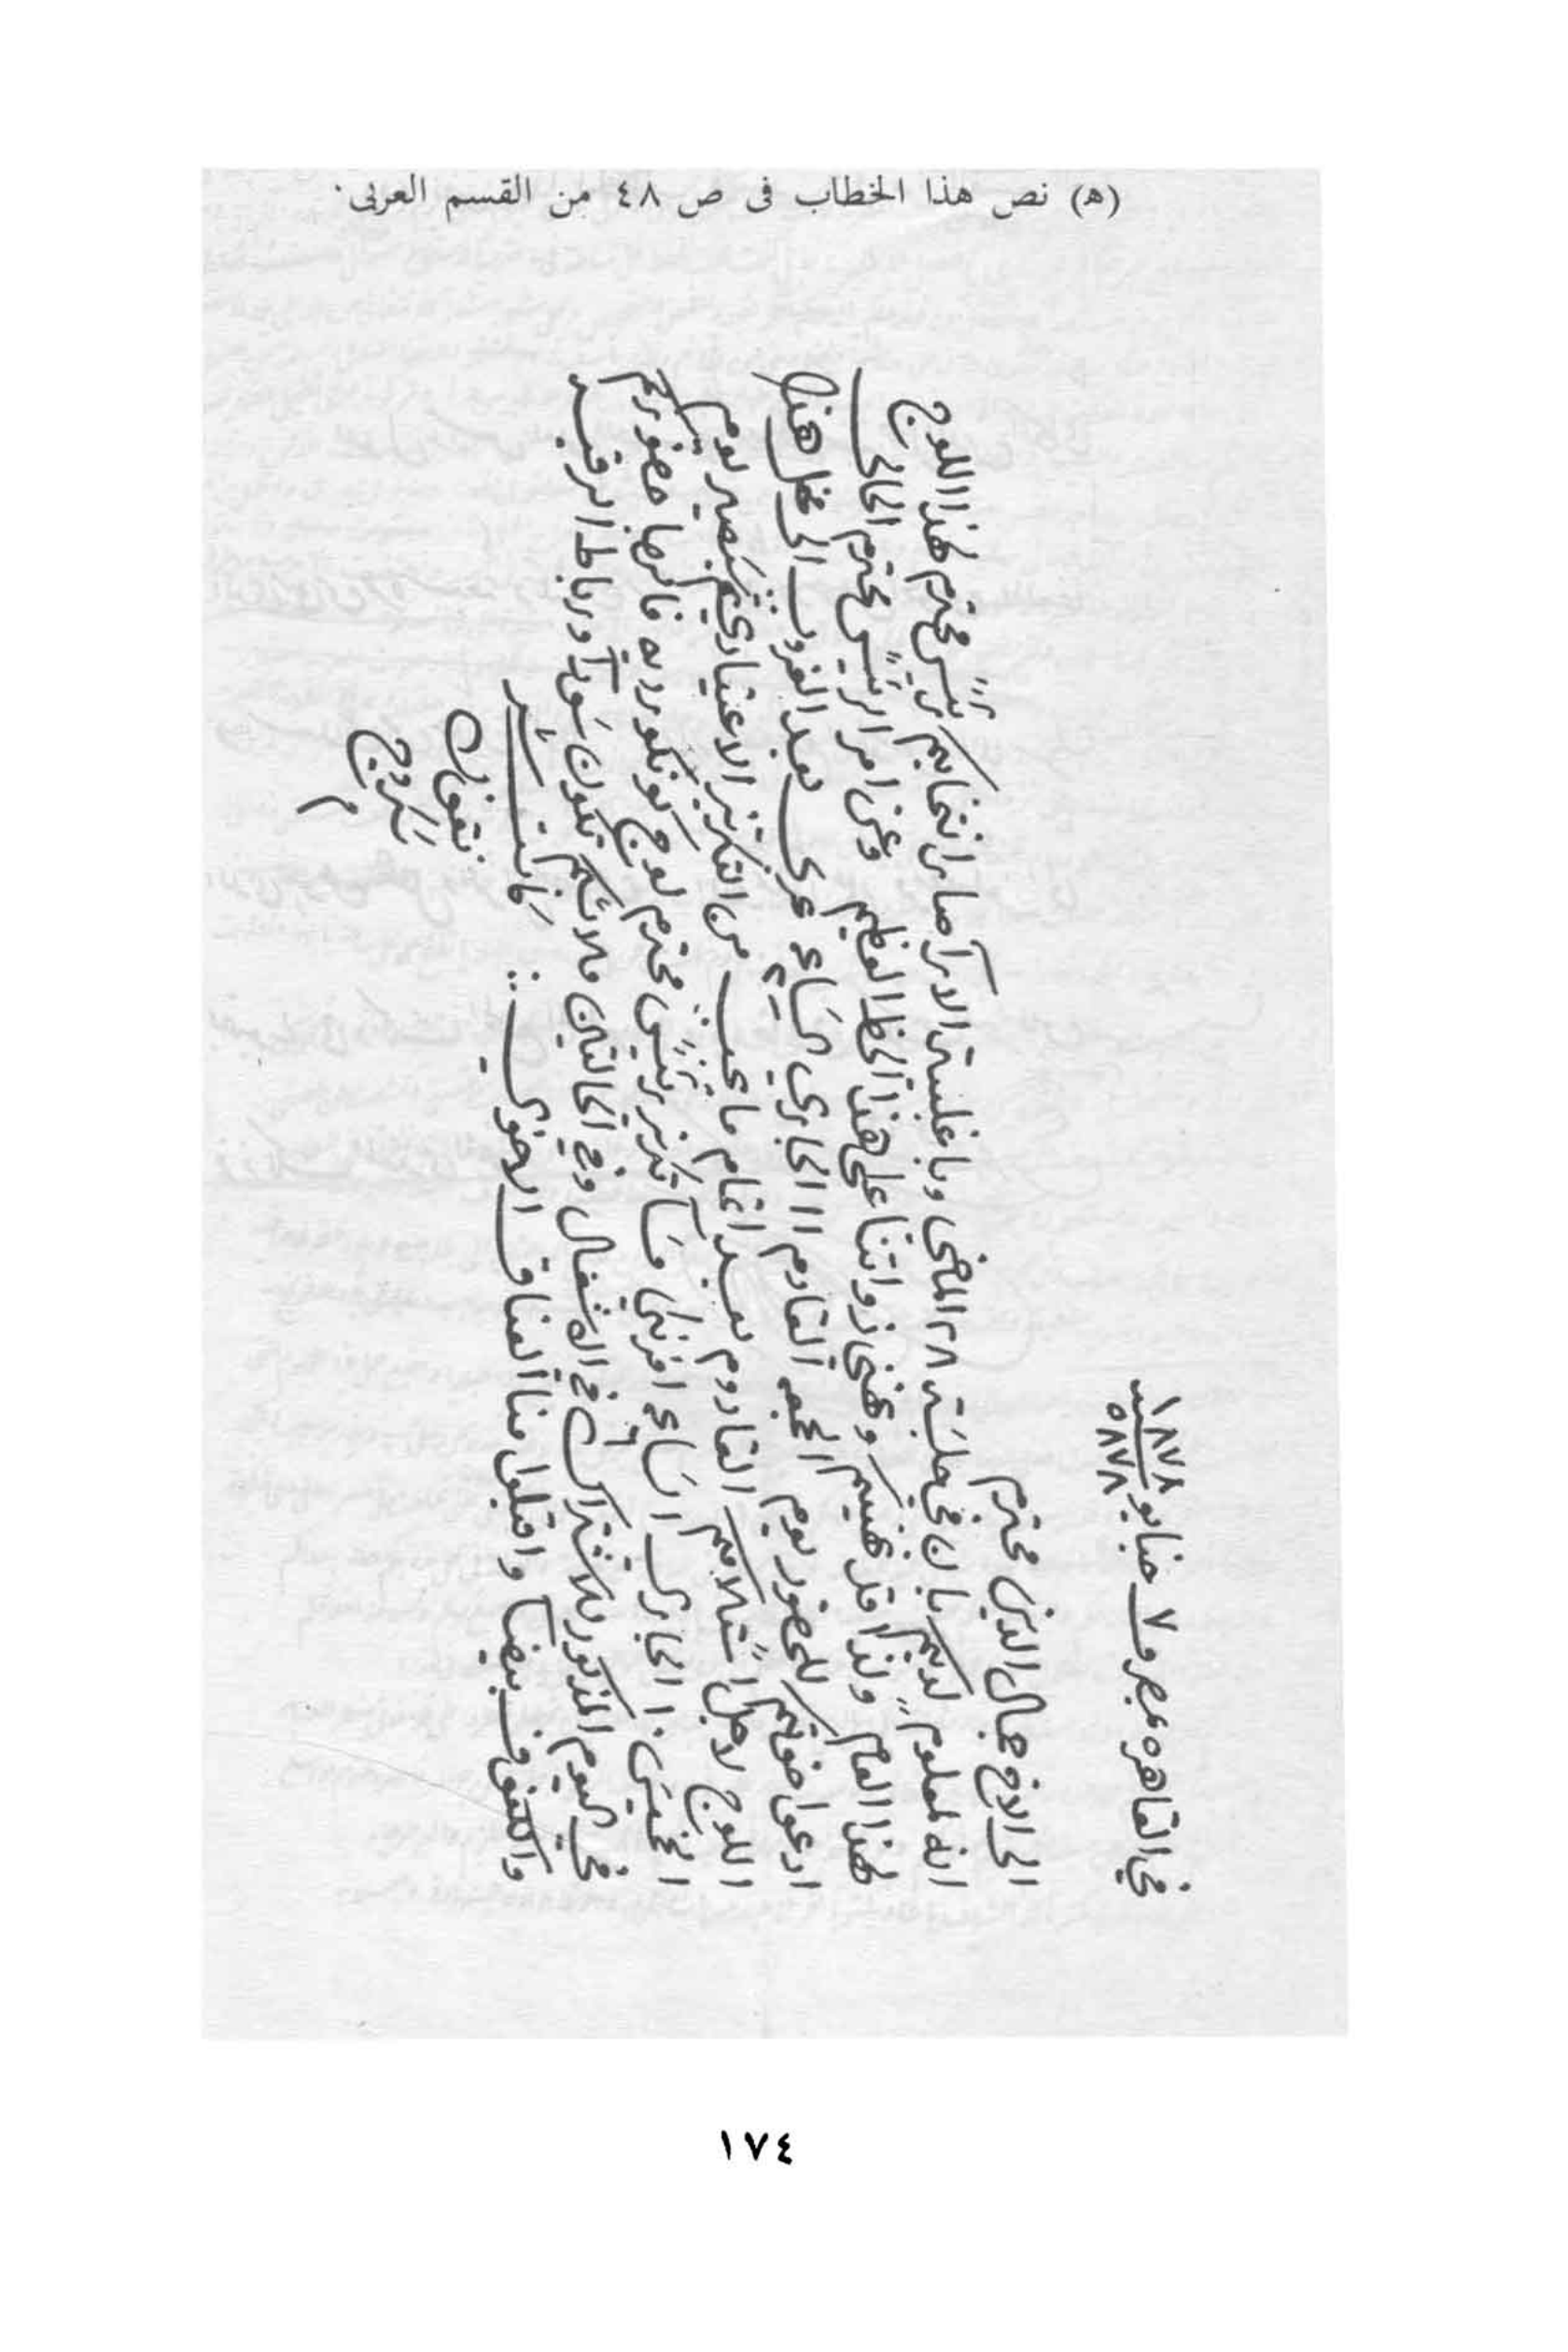 (ه) نص هذا الخطاب فى ص ٤٨ من القسم العربى.
في القاهره بمصر ٧ جنايو سنه ١٨٧٨
٥٨٧٨
الى الاخ جمال الدين محترم
انه لمعلوم لديكم بان في جلسة ٢٨ الماضى وباغلبية الآرا صار انتخابكم رئيس محترم لهذا اللوج
لهذا العام ولذا قد نهنيكم ونهنى ذواتنا على هذا الحظ العظيم وعن امر الرئيس محترم الحالى
ادعوا اخوتكم للحضور يوم الجمعه القادم ١١ الجاري الساعه ٢ عربى بعد الغروب الى محفل هذا
اللوج لاجل استلامكم القادوم بعد اتمام ما يجب من التكريز الاعتيادي ثم سيصير يوم
الخميس ١٠ الجارى الساعه ٦ افرنكى مسآ تكريز رئيس محترم لوج كونكورديه فالرجا حضوركم
في اليوم المذكور للاشتراك في الاشغال وفي الحالتين ملابسكم تكون سودآ ورباط الرقبه
والكفوف بيضا واقبلوا منا العناق الاخوى
كاتب سر
نقولا
سكروج
م
١٧٤